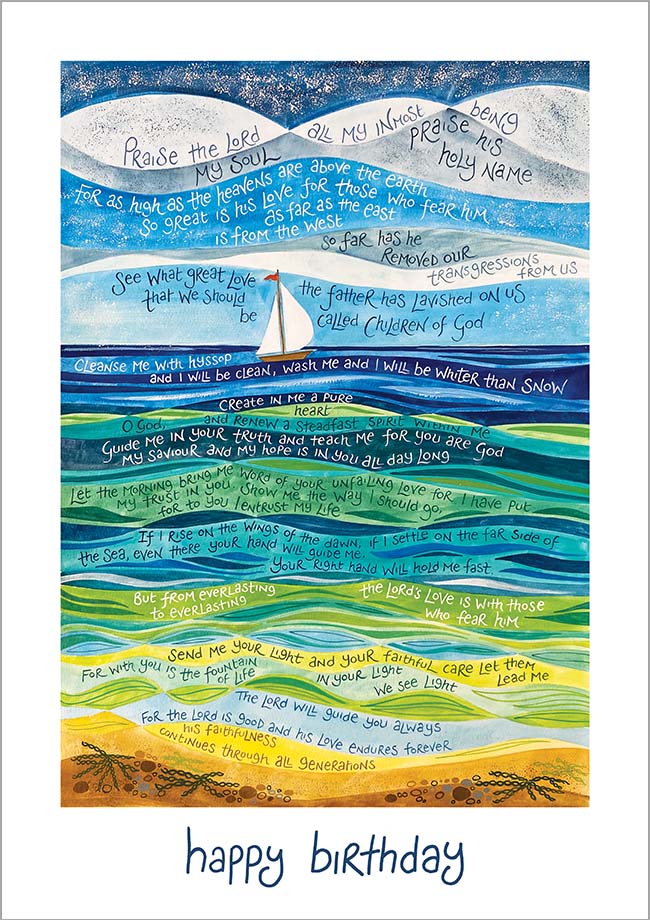 Praise the Lord all my inmost being
my soul praise his
holy name
For as high as the heavens are above the earth
So great is his love for those who fear him
as far as the east
is from the west
so far has he
removed our
transgressions
from us
See what great love the father has lavished on us
that we should be called children of God
Cleanse me with hyssop
and I will be clean, wash me and I will be whiter than snow
Create in me a pure
heart
O God, and renew a steadfast spirit within me
Guide me in your truth and teach me for you are God
my saviour and my hope is in you all day long
Let the morning bring me word of your unfailing love for I have put
my trust in you. Show me the way I should go,
for to you I entrust my life
If I rise on the wings of the dawn, if I settle on the far side of
the sea, even there your hand will guide me.
Your right hand will hold me fast.
But from everlasting
to everlasting
the Lord's love is with those
who fear him
Send me your light and your faithful care let them
lead me
For with you is the fountain
of life
in your light
we see light
The Lord will guide you always
For the Lord is good and his love endures forever
his faithfulness
continues through all generations
happy birthday